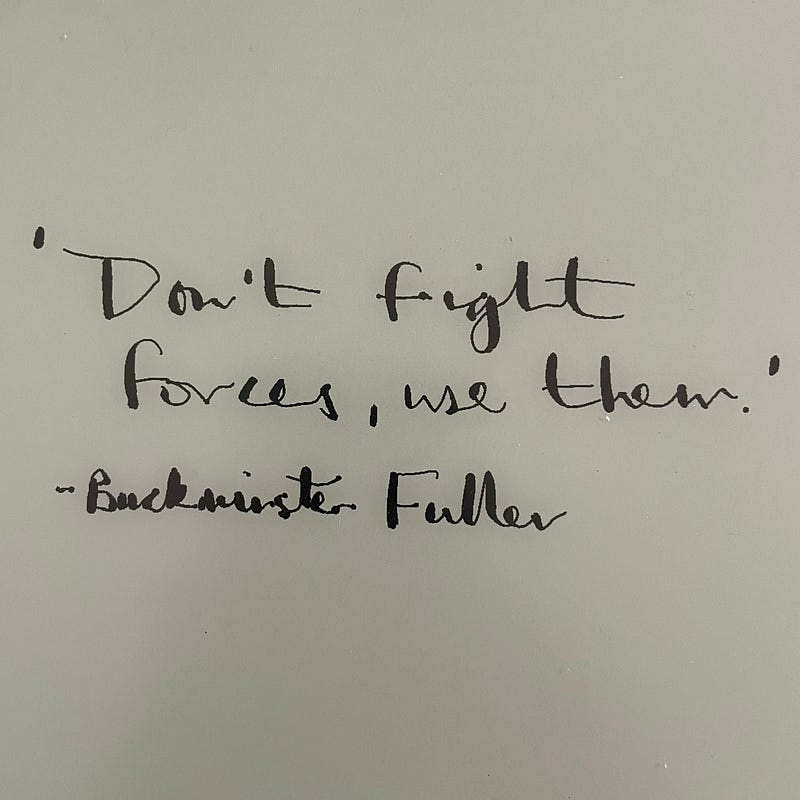 'Don't fight
forces, use them.'
- Buckminster Fuller